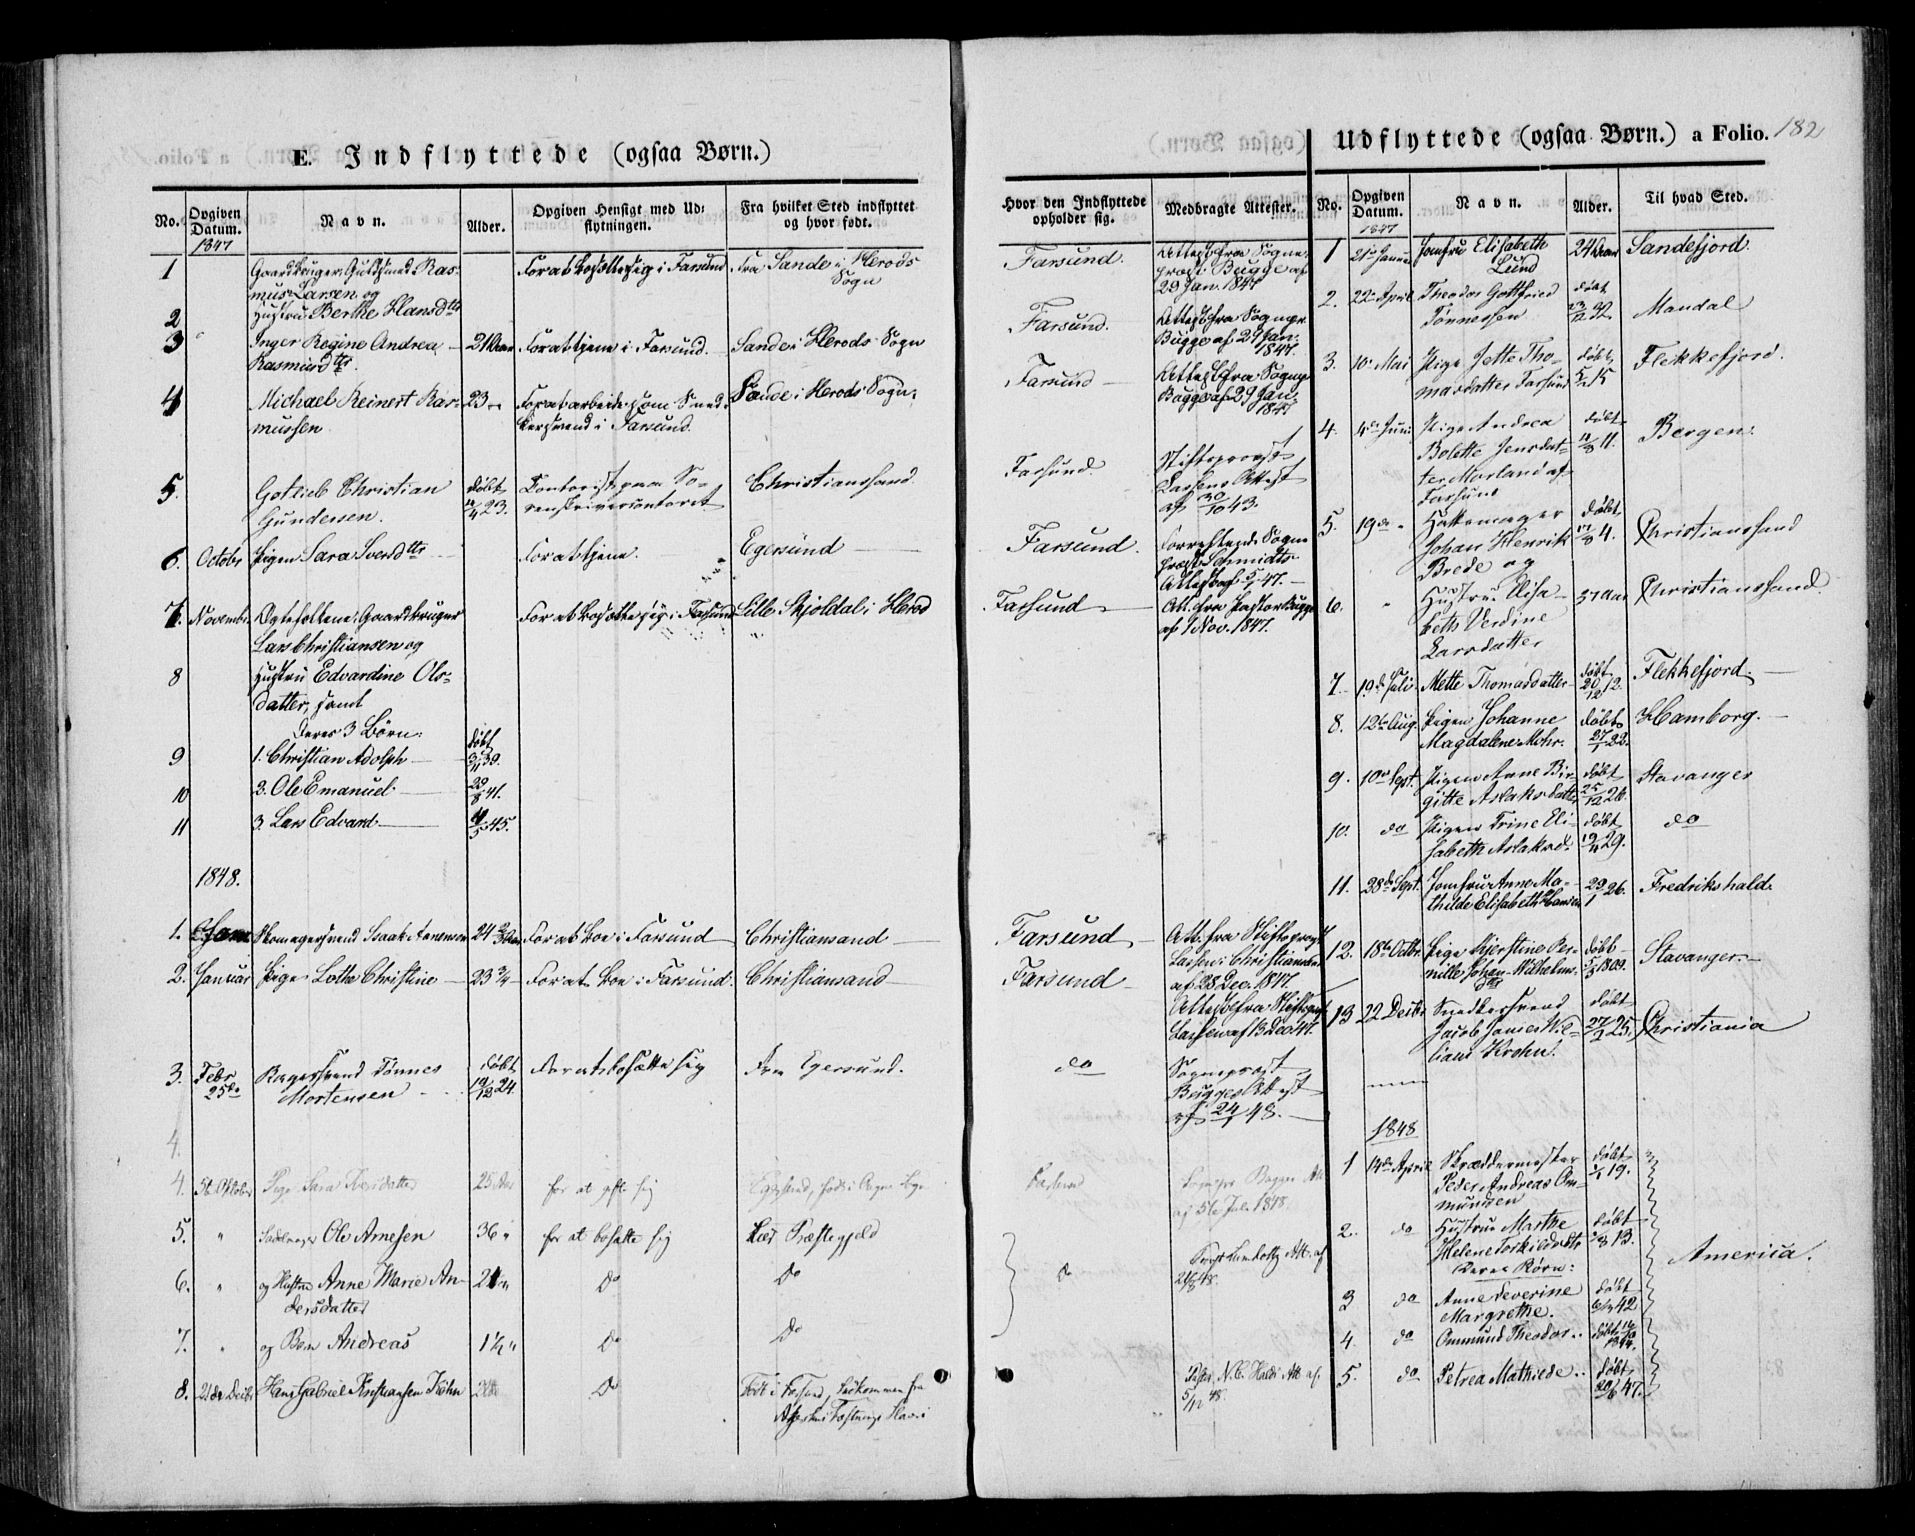 E. Indflyttede (ogsaa Børn.)
No.
Opgiven Datum.
Navn.
Alder.
Opgiven Hensigt med Ud:
flytningen.
Fra hvilket Sted indflyttet
og hvor født.
1847
1
Gaardbruger, Guldsmed Ras-
mus Larsen og
For at bosætte sig i Farsund
Fra Sande i Herods
Sogn
2
Hustru Berthe Hansdtr
3
Inger Regine Andrea
Rasmusdtr.
21 Aar
For at tjene i Farsund.
Sande i Herods Sogn
4
Michael Reinert Ras-
mussen
23
For at arbeide som Sned-
kersvend i Farsund.
Sande i Herods Sogn
5.
Gotlieb Christian
Gundersen.
døbt
23.
Contorist paa So-
renskrivercontoret
Christianssand.
6.
October
Pigen Sara Sversdtr
For at tjene.
Egersund
7.
November
Ægtefolkene Gaardbruger
Lars Christiansen og
For at bosætte sig i Farsund
Lille Skjoldal i Herod
8
Hustru Edvardine Ols-
datter, samt
deres 3 Børn:
9
1. Christian Adolph
døbt
3/11 39.
10
2. Ole Emanuel
22/8 41.
11
3. Lars Edvard
45.
1848.
1.
Skomagersvend Isaak Annensen
24
For at boe i Farsund
Christiansand
2.
Januar
Pige Lothe Christine
23 3/4
For at boe i Farsund.
Christiansand
3.
Febr
25de
Bagersvend Tønnes
Mortensen
døbt
19/12 24.
For at bosætte sig
Fra Egersund.
4.
4.
5te Oktober
Pige Sara
25 Aar
for at gifte sig
Egersund, født i
5.
"
Ole Arnesen
36 "
for at bosatte sig
Præstegjeld
6.
"
og Hustru Anne Marie An-
dersdatter
21 "
Do
Do
7.
"
og Barn Andreas
1½ "
Do
Do
8.
21de Decbr
Hans Gabriel Kristiansen Kühn
Do
Født i Farsund,
Udflyttede (ogsaa Børn.) a Folio. 182
Hvor den Indflyttede
opholder sig.
Medbragte Attester.
No.
Opgiven
Datum.
Navn.
Alder.
Til hvad Sted.
Farsund.
Attest fra Sogne-
præst Bugge af
29 Jan. 1847
Farsund.
Attest fra Sognepr.
Bugge af 29 Jan.
1847.
Farsund
Attest fra Sognepr
Bugge af 29 Jan.
1847
Farsund.
Stiftsprovst
Lassens Attest
af 30/10 43.
Farsund.
Forrettende Sogne
præst Schmidts
Attest af 5/ 47.
Farsund
Att. fra Pastor Bugge
af 1 Nov. 1847.
Farsund
Att. fra Stiftsprovst
Lassen i Christiansand
af 28 Dec. 1847.
Farsund
Attest fra Stiftsprvst
Lassen af 13 Dec 47.
do
Sogneprest
Bugges Attest
af 24/1 48.
Farsund
Sognepr Bugges Att.
af 5te Juli 1848.
Do
Att. af
21/8 48.
Att. af.
5/12 48.
1847
1
21de Januar
Jomfru Elisabeth
Lund
24 Aar
Sandefjord.
2.
22de April
Theodor Gottfried
Tønnessen
døbt
23/12 32
Mandal
3.
10de Mai
Pige Jette Tho-
masdatter Farsund
døbt
15
Flekkefjord.
4.
4de Juni
Pige Andrea
Bolette Jensdat-
ter Morland af
Farsund
døbt
11.
Bergen.
5.
19de "
Hattemager
Johan Henrik
Brede og
døbt
4.
Christianssand
6.
"
Hustru Elisa-
beth Verdine
Larsdatter
37 Aar
Christianssand.
7
19de Juli
Mette Thomasdatter
døbt
20/12 12.
Flekkefjord.
8.
12te Aug.
Pigen Johanne
Magdalene Mohr.
døbt
27/1 22.
Hamborg.
9.
10de Sept.
Pigen Anne Bir-
gitte Aslaksdatter
døbt
25/12 26.
Stavanger
10.
do
Pigen Trine Eli-
sabeth Aslaksd.
døbt
29.
do
11.
28de Sept.
Jomfru Anne Ma-
thilde Elisabeth Hansen
29/1 26.
Fredrikshald.
12.
18de Octbr.
Pige Kjerstine Per-
nille Johan Wilhelms-
dtr
døbt
1809.
Stavanger.
13
22 Decbr
Snedkersvend
Jacob James Wil-
liam Krohn.
døbt
27/2 25.
Christiania
1848
1
14de April
Skræddermester
Peder Andreas Om-
mundsen
døbt
19.
2.
do
Hustrue Marthe
Helene Torkildsdtr
døbt
13.
America.
Deres Børn:
3
do
Anne Severine
Margrethe.
døbt
42.
4.
do
Ommund Theodor
døbt
5.
do
Petrea Mathilde
døbt
47.